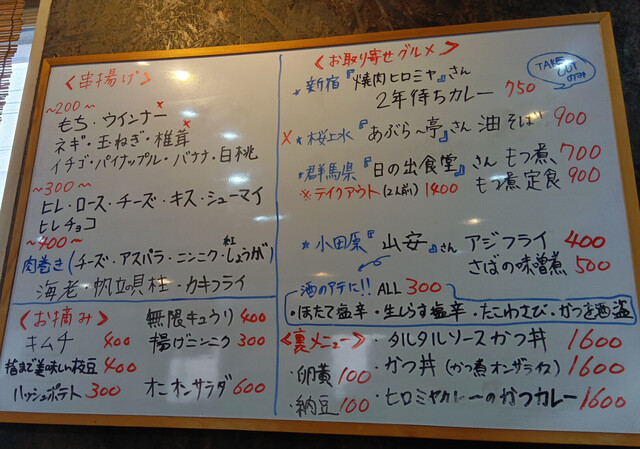 〈串揚げ〉
〜200〜
もち・ウインナー
ネギ・玉ねぎ・椎茸
イチゴ・パイナップル・バナナ・白桃
〜300〜
ヒレ・ロース・チーズ・キス・シューマイ
ヒレチョコ
〜400〜
肉巻き(チーズ・アスパラ・ニンニク・紅しょうが)
海老・帆立の貝柱・カキフライ
〈お摘み〉
無限キュウリ 400
キムチ 400
揚げニンニク 300
皮まで美味しい枝豆 400
ハッシュポテト 300
オニオンサラダ 600
〈お取り寄せグルメ〉
TAKE OUTのみ
★新宿『焼肉ヒロミヤ』さん
2年待ちカレー 750
×★桜上水『あぶら〜亭』さん 油そば 900
★群馬県『日の出食堂』さん もつ煮 700
※テイクアウト(2人前) 1400 もつ煮定食 900
★小田原『山安』さん アジフライ 400
さばの味噌煮 500
酒のアテに!! ALL 300
・ほたて塩辛・生しらす塩辛・たこわさび・かつを酒盗
〈裏メニュー〉
・タルタルソースかつ丼 1600
・卵黄 100
・かつ丼(かつ煮オンザライス) 1600
・納豆 100
・ヒロミヤカレーのかつカレー 1600